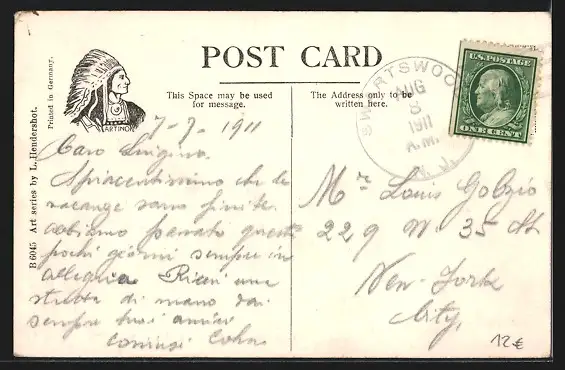 POST CARD
This Space may be used
for message.
The Address only to be
written here.
B 6045 Art series by L. Hendershot.
Printed in Germany.
ARTINO
SWARTSWOOD
AUG
8
1911
A.M.
N. J.
U.S. POSTAGE
ONE CENT
7-7. 1911
Caro Luigino.
Spiacentissimo che le
vacanze sono finite.
abbiamo questi
pochi giorni sempre in
allegria Ricevi una
stretta di mano dai
sempre tuoi amici
Mr Louis
229 W 35 St
New-York
City,
12€